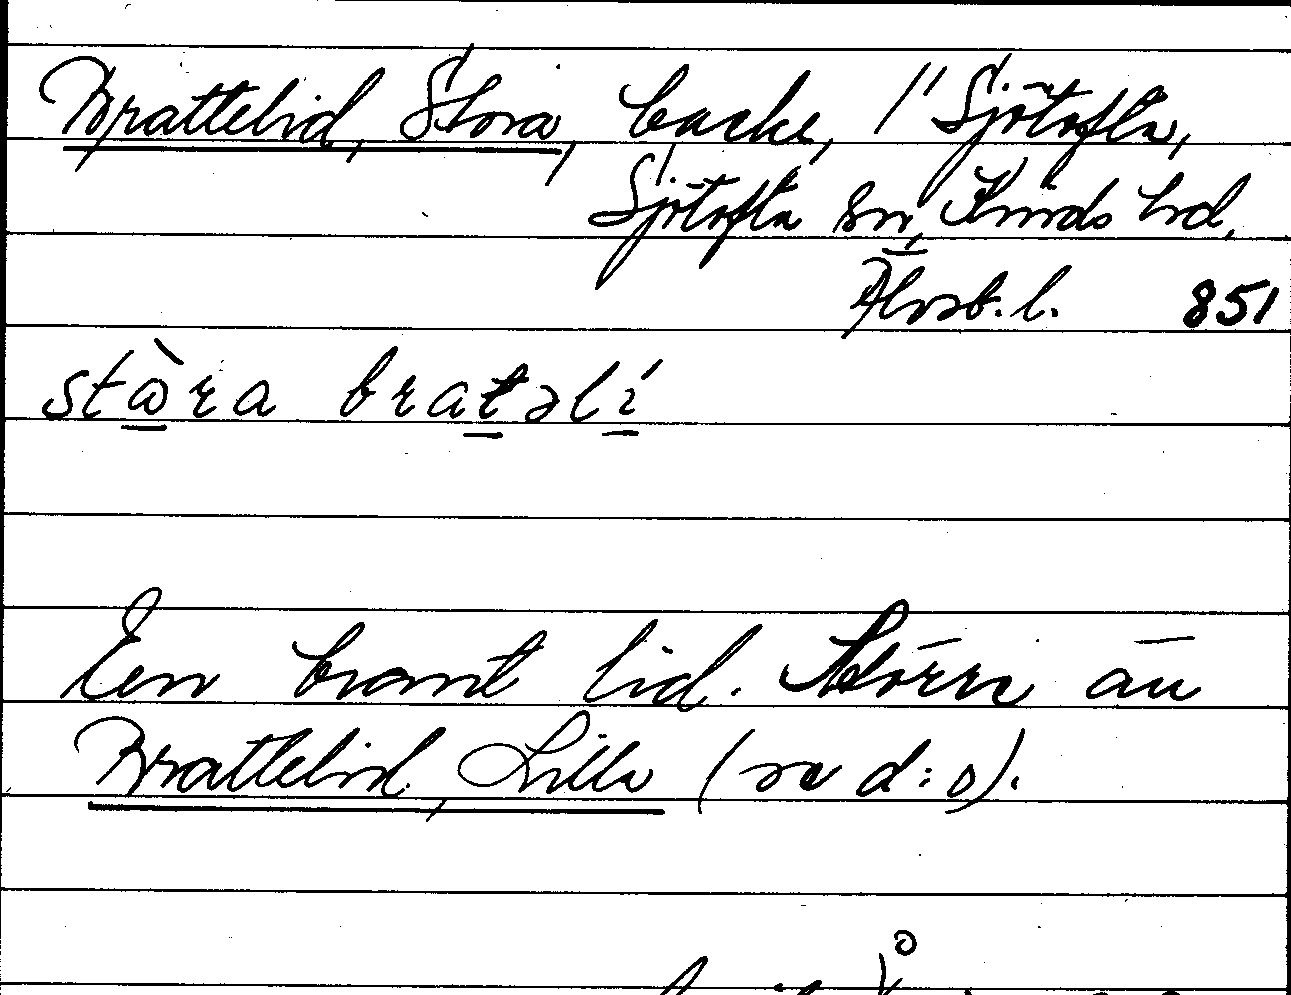 Brattelid, Stora, backe, 1" Sjötofta,
Sjötofta sn, Kinds hd,
Älvsb. l. 851
stɷ̀ra bratəlí
En brant lid. Större än
Brattelid, Lilla (se d:o).